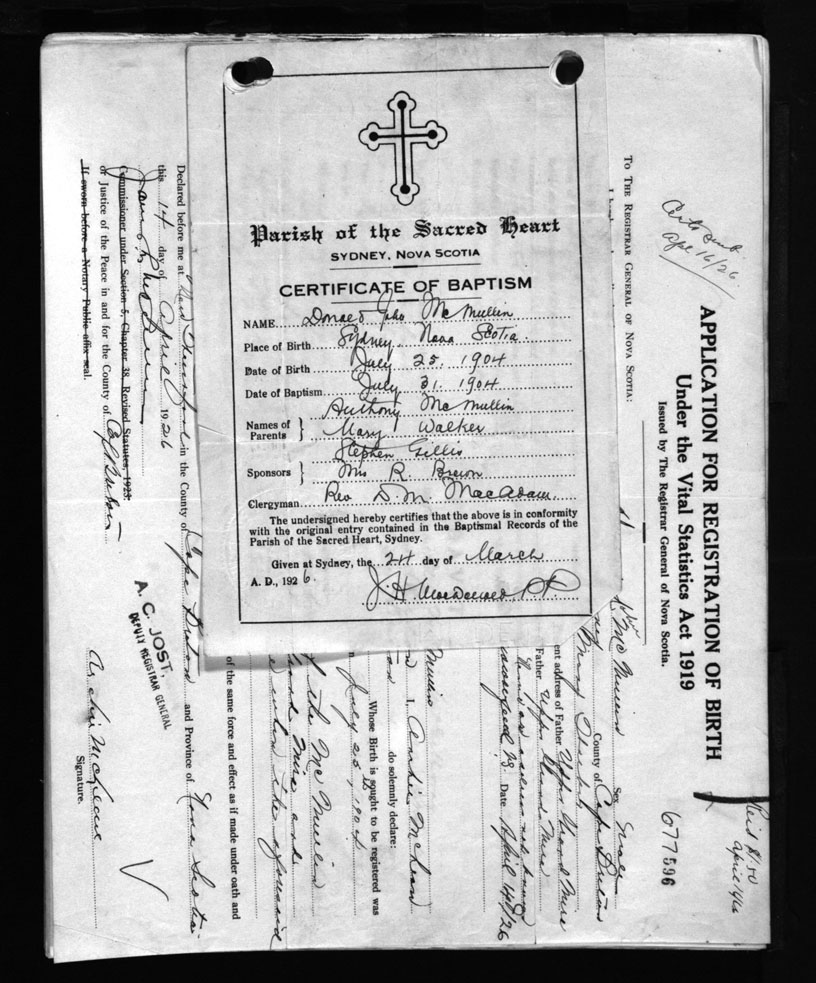 Parish of the Sacred Heart
SYDNEY, NOVA SCOTIA
CERTIFICATE OF BAPTISM
NAME Donald John McMullin
Place of Birth Sydney Nova Scotia
Date of Birth July 25. 1904
Date of Baptism July 31. 1904
Names of Parents } Anthony McMullin
Mary Walker
Sponsors } Stephen Gillis
Mrs R. Brown
Clergyman Rev D. M. MacAdam
The undersigned hereby certifies that the above is in conformity
with the original entry contained in the Baptismal Records of the
Parish of the Sacred Heart, Sydney.
Given at Sydney, the 24 day of March
A. D., 1926.
J. H. MacDonald P.P.
APPLICATION FOR REGISTRATION OF BIRTH
Under the Vital Statistics Act 1919
Issued by The Registrar General of Nova Scotia.
TO THE REGISTRAR GENERAL OF NOVA SCOTIA:
Apl 16/26
April 14/26
677596
Sex
County of Cape Breton
ent address of Father Upper Grand Mira
Father Upper Grand Mira
Date April 14th/26
I, Archie McLean
do solemnly declare:
Whose Birth is sought to be registered was
July 25th 1904
of the McMullin
the aforesaid
of the same force and effect as if made under oath and
Declared before me at in the County of Cape Breton and Province of Nova Scotia
this 14 day of April 1926
Commissioner under Section 5, Chapter 38, Revised Statutes, 1923.
or Justice of the Peace in and for the County of Cape Breton
If sworn before a Notary Public affix seal.
A. C. JOST,
DEPUTY REGISTRAR GENERAL
Archie McLean
Signature.